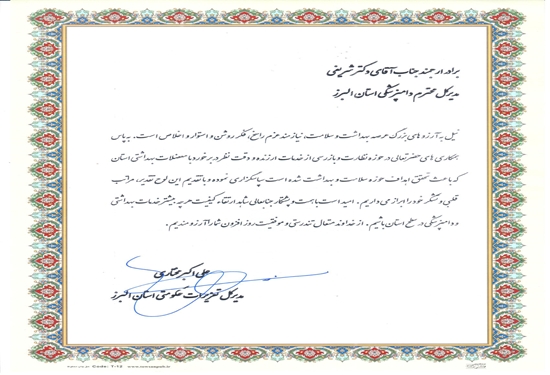 برادر ارجمند جناب آقای دکتر شریفی
مدیرکل محترم دامپزشکی استان البرز
نیل به آرزوهای بزرگ عرصه بهداشت و سلامت، نیازمند عزم راسخ، فکر روشن و استوار و اخلاص است. به پاس
همکاری های حضرتعالی در حوزه نظارت و بازرسی از خدمات ارزنده و دقت نظر در برخورد با معضلات بهداشتی استان
که باعث تحقق اهداف حوزه سلامت و بهداشت شده است سپاسگزاری نموده و با تقدیم این لوح تقدیر، مراتب
قلبی و تشکر خود را ابراز می داریم. امید است با همت و پشتکار جنابعالی شاهد ارتقاء کیفیت هر چه بیشتر خدمات بهداشتی
و دامپزشکی در سطح استان باشیم. از خداوند متعال تندرستی و موفقیت روز افزون شما را آرزومندیم.
علی اکبر مختاری
مدیرکل تعزیرات حکومتی استان البرز
Code: T-12